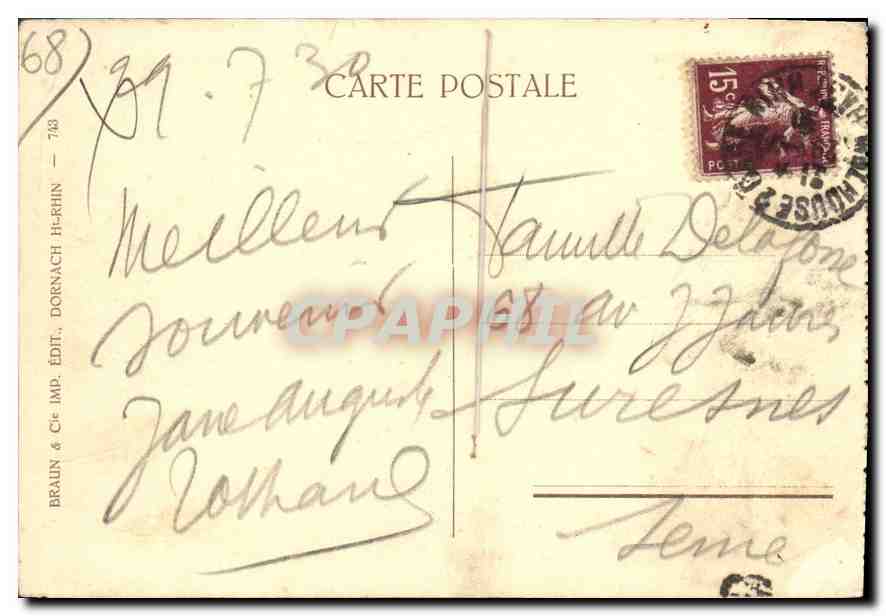 (68)
29.7 30
CARTE POSTALE
15 C
POSTES
MULHOUSE 2
Meilleurs
souvenirs
Jane Auguste
Famille
68 av J Jaures
Suresnes
Seine
CPAPHIL
BRAUN & Cie IMP. ÉDIT., DORNACH Ht-RHIN — 743